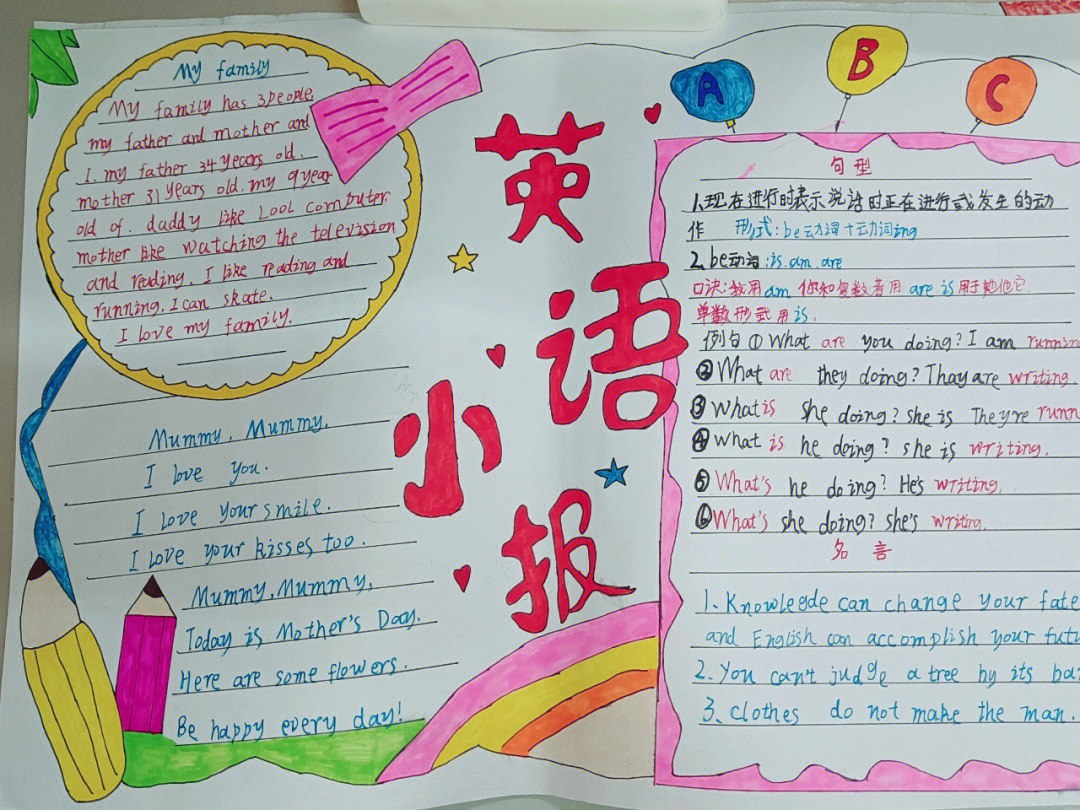 My family
My family has 3 people,
my father and mother and
I. my father 34 years old.
mother 31 years old. my 9 year
old of. daddy like Lool computer.
mother like watching the television
and reading. I like reading and
running. I can skate.
I love my family.
Mummy, Mummy,
I love you.
I love your smile.
I love your kisses, too.
Mummy, Mummy,
Today is Mother's Day.
Here are some flowers.
Be happy every day!
英
语
小
报
A B C
句型
1.现在进行时表示说话时正在进行或发生的动
作 形式:be动词+动词ing
2.be动词:is.am.are
口诀:我用am 你和复数者用are is用于她他它
单数形式用is.
例句①What are you doing? I am runnin
②What are they doing? Thay are writing.
③What is she doing? she is They're runn
④What is he doing? she is writing.
⑤What's he doing? He's writing.
⑥What's she doing? she's writing.
名言
1. Knowlegde can change your fate
and English can accomplish your futu
2. You can't judge a tree by its ba
3. Clothes do not make the man.